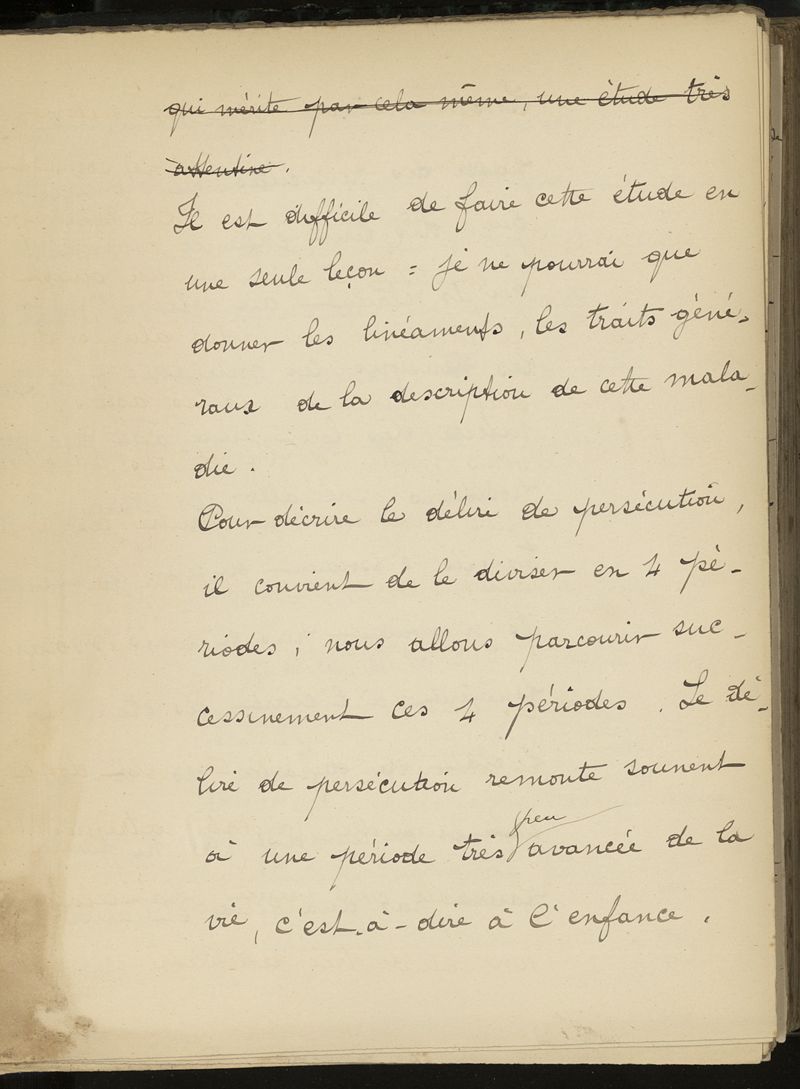 qui mérite par cela même, une étude très
attentive.
Il est difficile de faire cette étude en
une seule leçon = je ne pourrai que
donner les linéaments, les traits géné-
raux de la description de cette mala-
die.
Pour décrire le délire de persécution,
il convient de le diviser en 4 pé-
riodes ; nous allons parcourir suc-
cessivement ces 4 périodes. Le dé-
lire de persécution remonte souvent
peu
à une période très avancée de la
vie, c'est-à-dire à l'enfance.